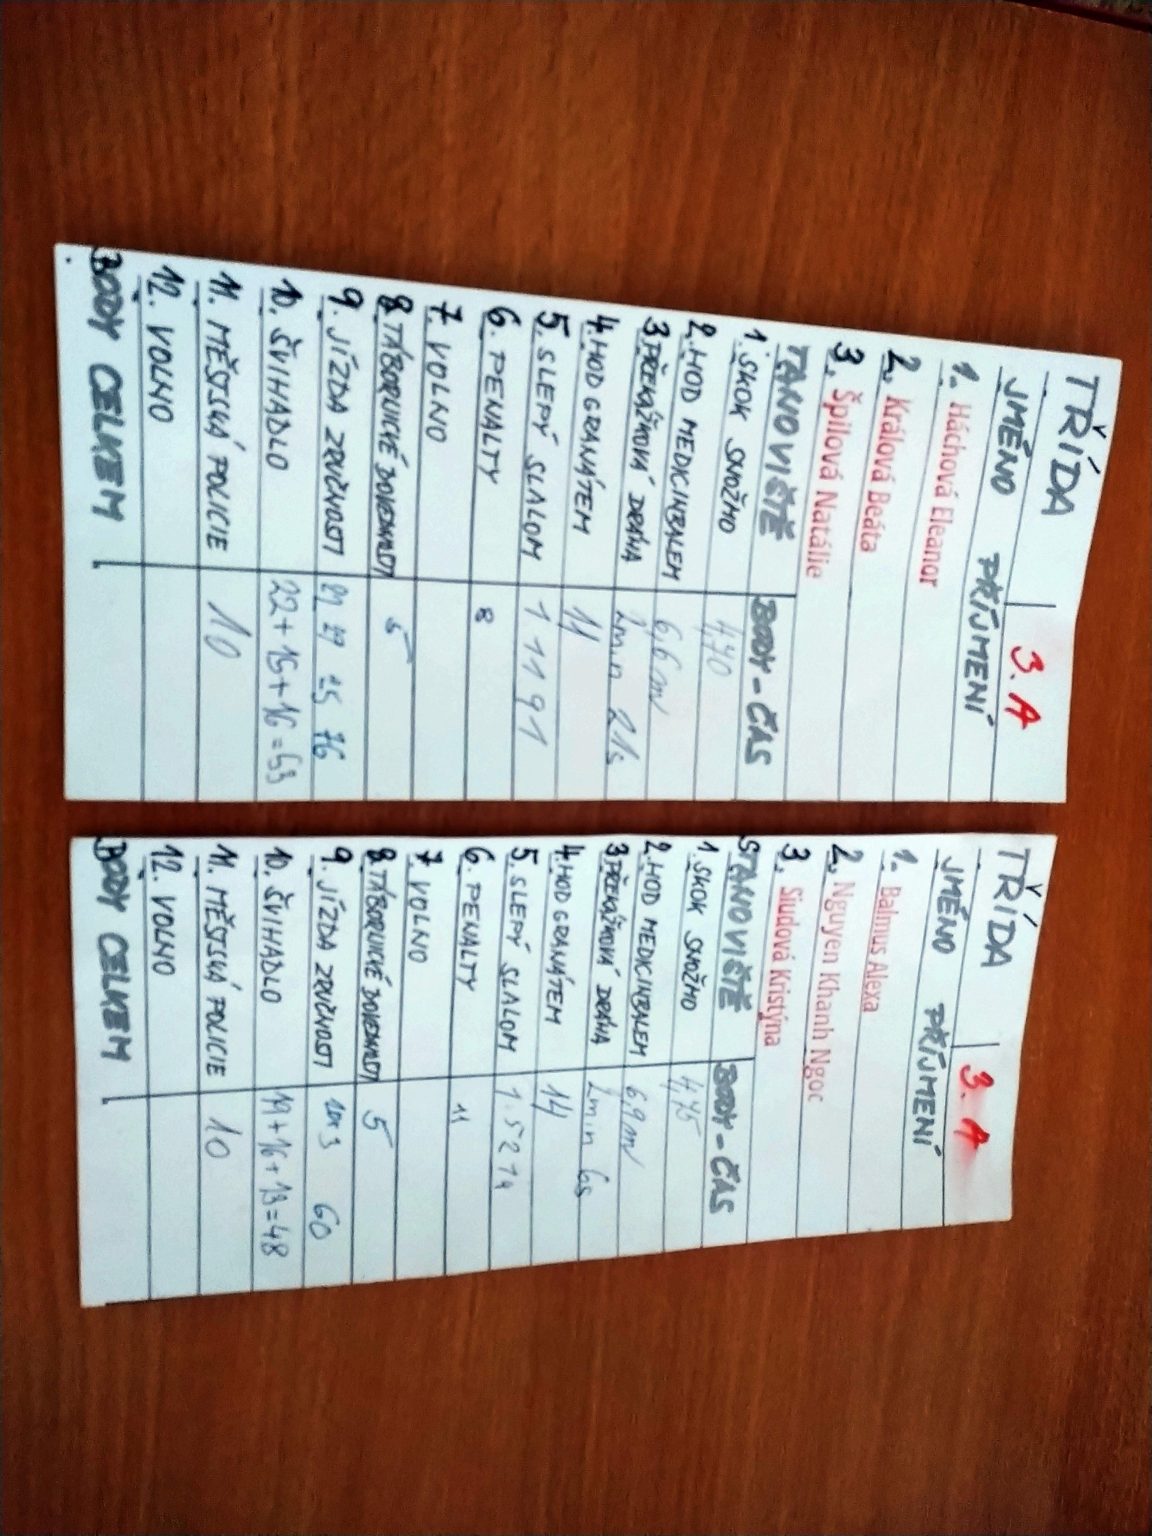 TŘÍDA 3. A
JMÉNO PŘÍJMENÍ
1. Háchová Eleanor
2. Králová Beáta
3. Špilová Natálie
STANOVIŠTĚ BODY - ČAS
1. SKOK SNOŽMO 4,70
2. HOD MEDICINBALEM 6,6 m
3. PŘEKÁŽKOVÁ DRÁHA 2 min 21s
4. HOD GRANÁTEM 11
5. SLEPÝ SLALOM 1 11 91
6. PENALTY 8
7. VOLNO
8. TÁBORNICKÉ DOVEDNOSTI 5
9. JÍZDA ZRUČNOSTI 76
10. ŠVIHADLO 22+15+16=53
11. MĚSTSKÁ POLICIE 10
12. VOLNO
BODY CELKEM
TŘÍDA 3. A
JMÉNO PŘÍJMENÍ
1. Balmus Alexa
2. Nguyen Khanh Ngoc
3. Siudová Kristýna
STANOVIŠTĚ BODY - ČAS
1. SKOK SNOŽMO 4,75
2. HOD MEDICINBALEM 6,9 m
3. PŘEKÁŽKOVÁ DRÁHA 2 min 6s
4. HOD GRANÁTEM 14
5. SLEPÝ SLALOM 1.52 14
6. PENALTY 11
7. VOLNO
8. TÁBORNICKÉ DOVEDNOSTI 5
9. JÍZDA ZRUČNOSTI 60
10. ŠVIHADLO 19+16+13=48
11. MĚSTSKÁ POLICIE 10
12. VOLNO
BODY CELKEM